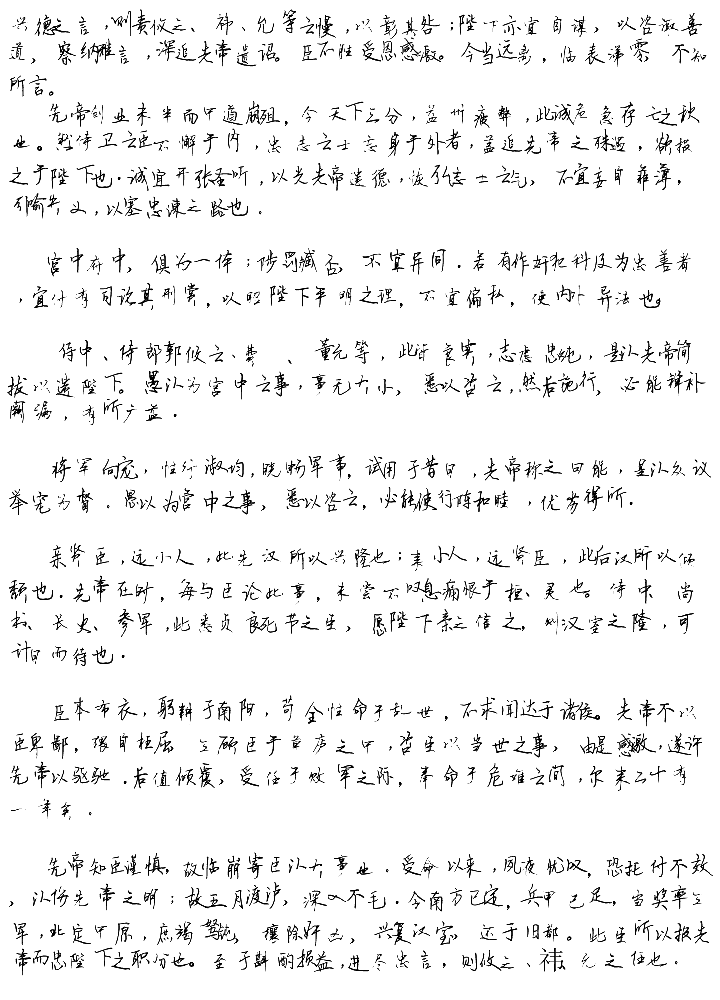 兴德之言，则责攸之、祎、允等之慢，以彰其咎；陛下亦宜自谋，以咨诹善
道，察纳雅言，深追先帝遗诏。臣不胜受恩感激。今当远离，临表涕零，不知
所言。
先帝创业未半而中道崩殂，今天下三分，益州疲弊，此诚危急存亡之秋
也。然侍卫之臣不懈于内，忠志之士忘身于外者，盖追先帝之殊遇，欲报
之于陛下也。诚宜开张圣听，以光先帝遗德，恢弘志士之气，不宜妄自菲薄，
引喻失义，以塞忠谏之路也。
宫中府中，俱为一体；陟罚臧否，不宜异同。若有作奸犯科及为忠善者
，宜付有司论其刑赏，以昭陛下平明之理，不宜偏私，使内外异法也。
侍中、侍郎郭攸之、费、董允等，此皆良实，志虑忠纯，是以先帝简
拔以遗陛下。愚以为宫中之事，事无大小，悉以咨之，然后施行，必能裨补
阙漏，有所广益。
将军向宠，性行淑均，晓畅军事，试用于昔日，先帝称之曰能，是以众议
举宠为督。愚以为营中之事，悉以咨之，必能使行阵和睦，优劣得所。
亲贤臣，远小人，此先汉所以兴隆也；亲小人，远贤臣，此后汉所以倾
颓也。先帝在时，每与臣论此事，未尝不叹息痛恨于桓、灵也。侍中、尚
书、长史、参军，此悉贞良死节之臣，愿陛下亲之信之，则汉室之隆，可
计日而待也。
臣本布衣，躬耕于南阳，苟全性命于乱世，不求闻达于诸侯。先帝不以
臣卑鄙，猥自枉屈，三顾臣于草庐之中，咨臣以当世之事，由是感激，遂许
先帝以驱驰。后值倾覆，受任于败军之际，奉命于危难之间，尔来二十有
一年矣。
先帝知臣谨慎，故临崩寄臣以大事也。受命以来，夙夜忧叹，恐托付不效
，以伤先帝之明；故五月渡泸，深入不毛。今南方已定，兵甲已足，当奖率三
军，北定中原，庶竭驽钝，攘除奸凶，兴复汉室，还于旧都。此臣所以报先
帝而忠陛下之职分也。至于斟酌损益，进尽忠言，则攸之、祎、允之任也。